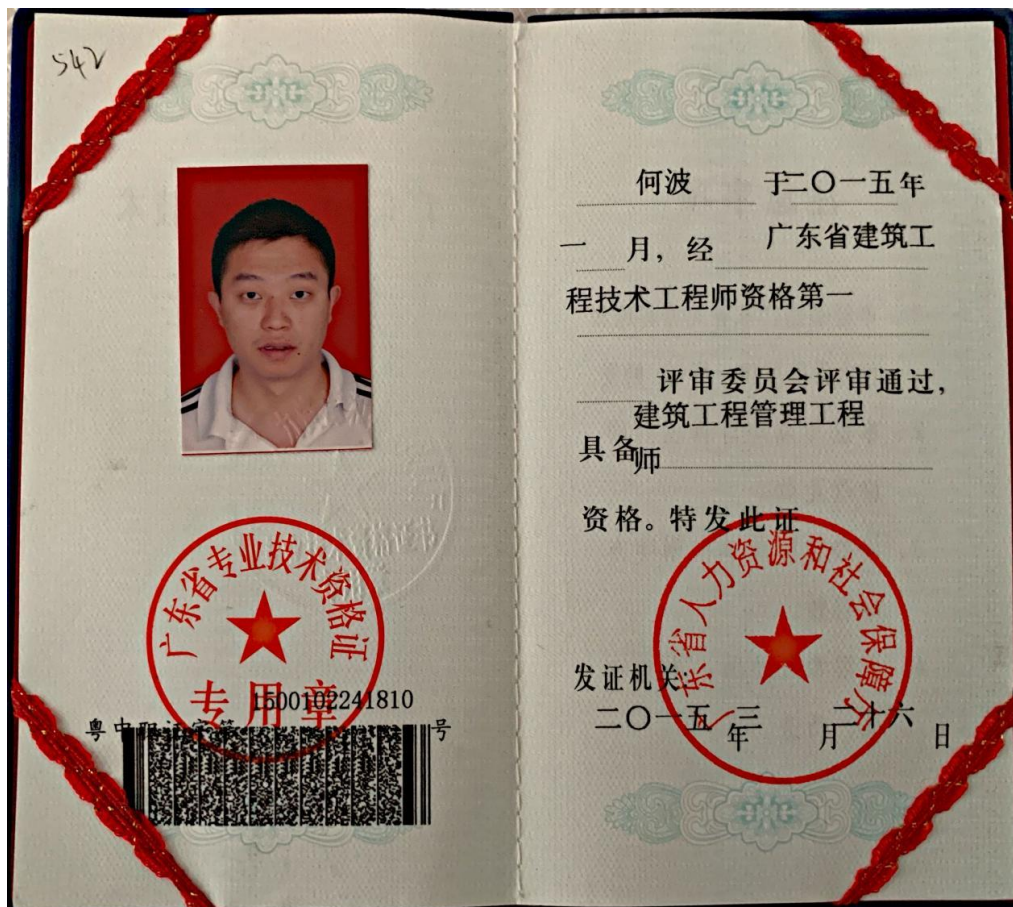 542
广东省专业技术资格证
专用章
1500102241810
粤中职证字第
号
何波 于二〇一五年
一 月，经 广东省建筑工
程技术工程师资格第一
评审委员会评审通过，
建筑工程管理工程
具备师
资格。特发此证
广东省人力资源和社会保障厅
发证机关:
二〇一五 年 三 月 二十六 日